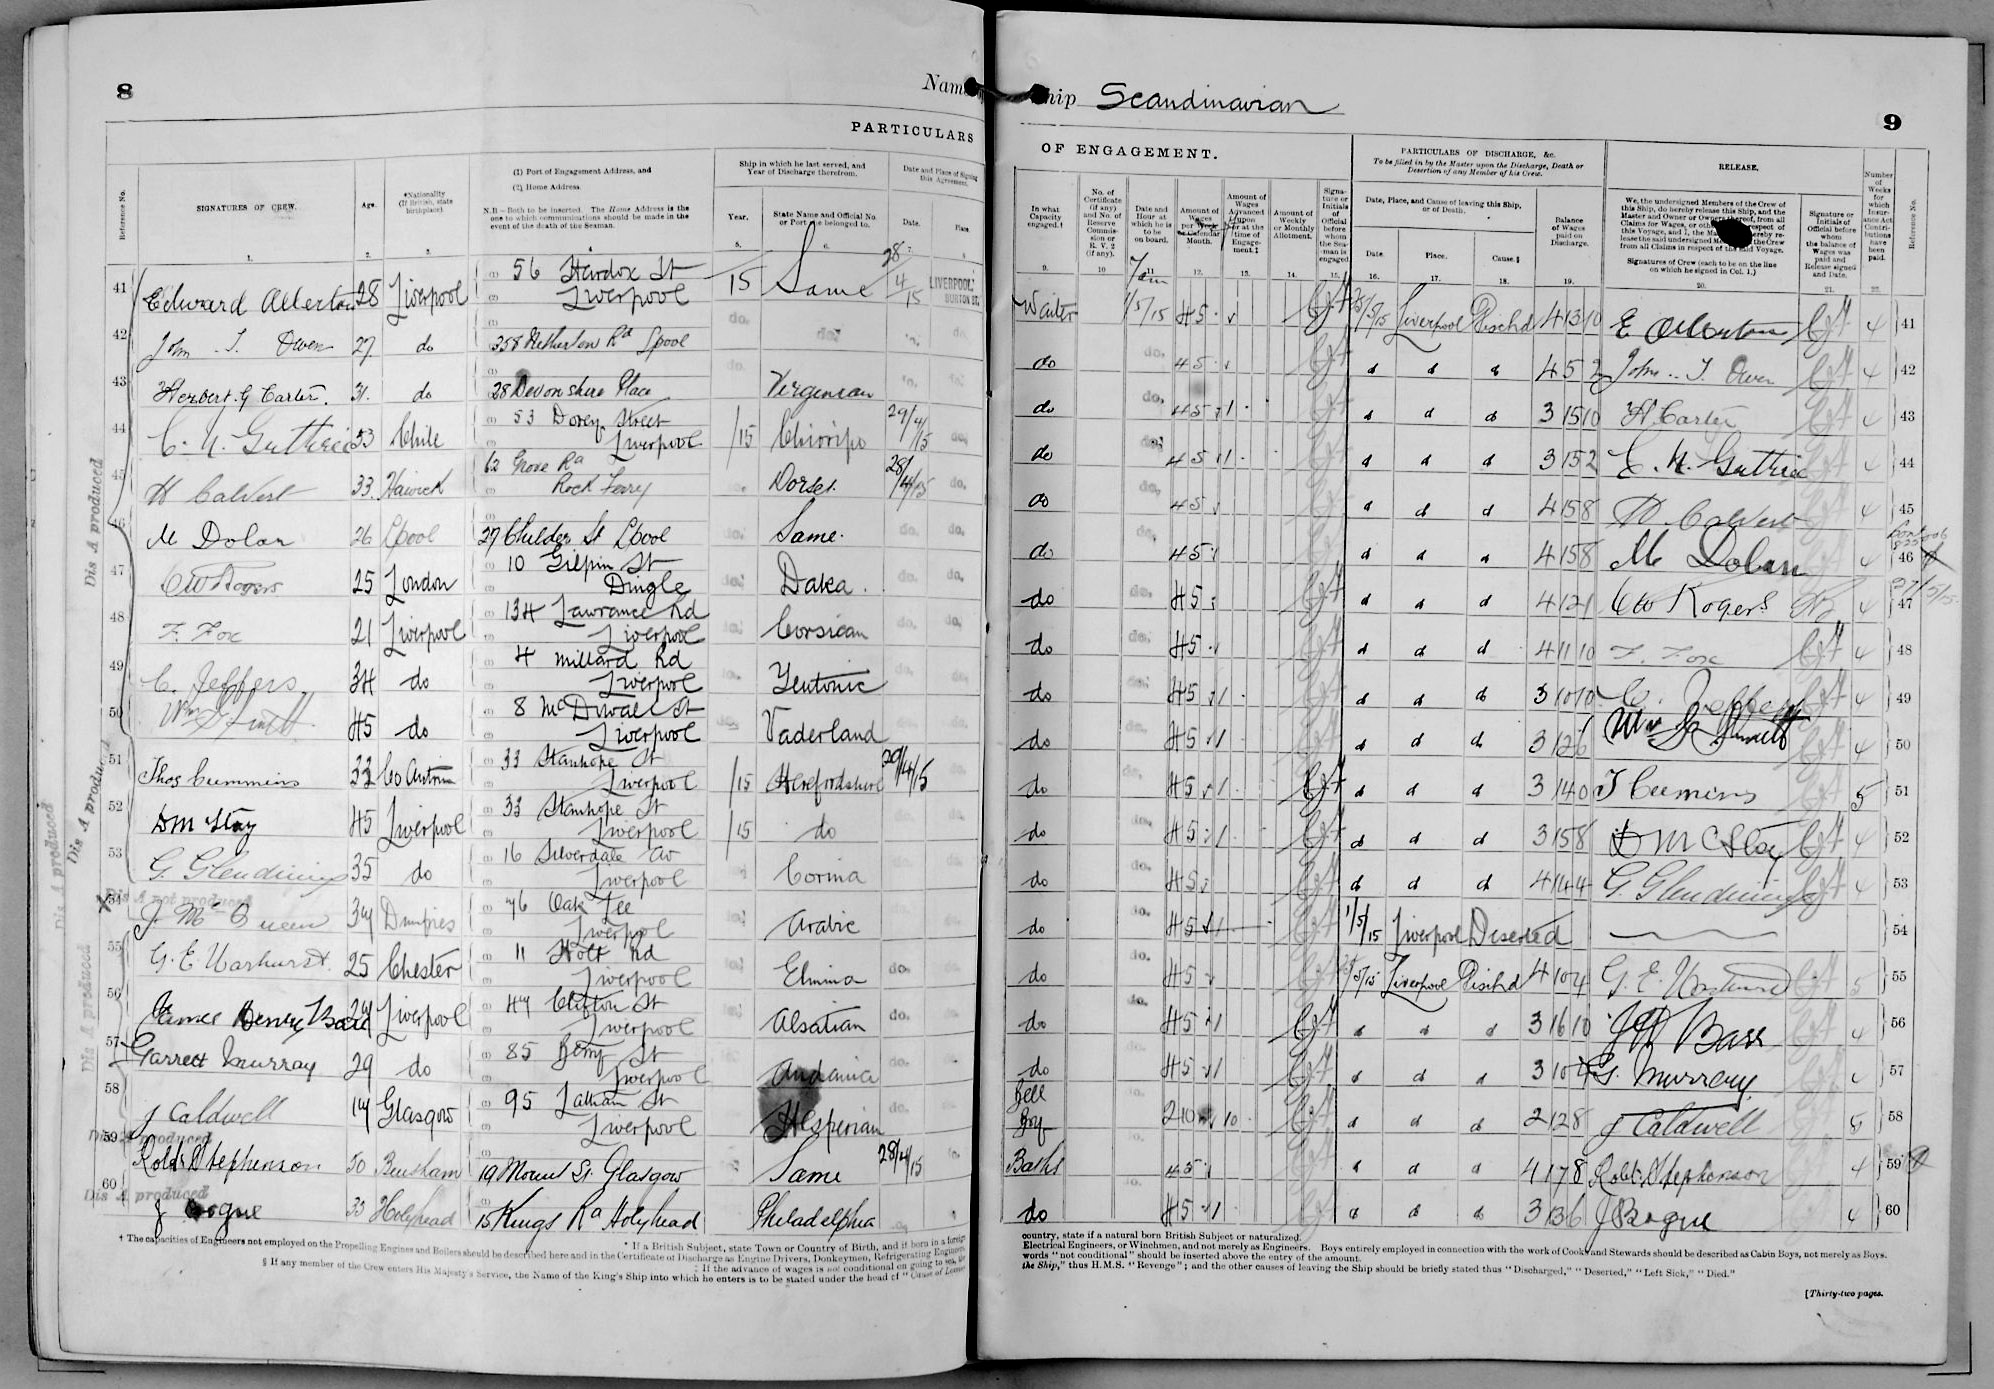 8
Nam
PARTICULARS
Reference No.
SIGNATURES OF CREW.
Age.
*Nationality
(If British, state
birthplace).
(1) Port of Engagement Address, and
(2) Home Address.
N.B—Both to be inserted. The Home Address is the
one to which communications should be made in the
event of the death of the Seaman.
Ship in which he last served, and
Year of Discharge therefrom.
Year.
State Name and Official No.
or Port she belonged to.
Date and Place of Signing
this Agreement.
Date.
Place.
1. 2. 3. 4 5. 6.
41 Edward Allerton 28 Liverpool 56 Liverpool 15 Same 28/4/15 LIVERPOOL.
42 John . T. Owen 27 do 358 Netherton Rd Lpool do. do.
43 Herbert. G Carter. 31. do 28 Devonshire Place Virginian
44 C. N. Guthrie 53 Chile 53 Dovey Street Liverpool /15 Chirripo 29/4/15 do.
45 H Calvert 33 Hawick 62 Grove Rd Rock Ferry Dorset. 28/4/15 do.
46 M Dolan 26 Lpool 27 Childer St Lpool Same. do. do.
47 C W Rogers 25 London 10 Gilpin St Dingle Daka. do. do.
48 F. Fox 21 Liverpool 134 Lawrance Rd Liverpool Corsican do. do.
49 C. Jeffers 34 do 4 Millard Rd Liverpool Teutonic
50 45 do 8 Liverpool Vaderland
51 Thos Cummins 33 Co Antrim 33 Stanhope St Liverpool /15 Herefordshire 29/4/15
52 D McStay 45 Liverpool 33 Stanhope St Liverpool /15 do
53 G. Glendining 35 do 16 Silverdale Av Liverpool Corina
54 J. McQueen 34 Dumfries 76 Oak Lee Liverpool Arabic
55 G. E. Warhurst 25 Chester 11 Holt Rd Liverpool Elmina do. do.
56 James Henry Bass 24 Liverpool 44 Clifton St Liverpool Alsatian do.
57 Garrett Murray 29 do 85 Berry St Liverpool Andania do.
58 J Caldwell 14 Glasgow 95 Latham St Liverpool Hesperian do.
59 Robt Stephenson 50 19 Mount St. Glasgow Same 28/4/15
60 J Bogue 33 Holyhead 15 Kings Rd Holyhead Philadelphia
Dis A produced
Dis A produced
Dis A produced
Dis A not produced
Dis A produced
Dis A produced
Dis A produced
† The capacities of Engineers not employed on the Propelling Engines and Boilers should be described here and in the Certificate of Discharge as Engine Drivers, Donkeymen, Refrigerating Engineers,
* If a British Subject, state Town or Country of Birth, and if born in a foreign
‡ If the advance of wages is not conditional on going to sea, the
§ If any member of the Crew enters His Majesty's Service, the Name of the King's Ship into which he enters is to be stated under the head of "Cause of Leaving
hip Scandinavian
9
OF ENGAGEMENT.
PARTICULARS OF DISCHARGE, &c.
To be filled in by the Master upon the Discharge, Death or
Desertion of any Member of his Crew.
RELEASE.
In what
Capacity
engaged.†
No. of
Certificate
(if any)
and No. of
Reserve
Commis-
sion or
R. V. 2
(if any).
Date and
Hour at
which he is
to be
on board.
Amount of
Wages
per Week
or Calendar
Month.
Amount of
Wages
Advanced
upon
or at the
time of
Engage-
ment.‡
Amount of
Weekly
or Monthly
Allotment.
Signa-
ture or
Initials
of
Official
before
whom
the Sea-
man is
engaged
Date, Place, and Cause of leaving this Ship,
or of Death.
Date.
Place.
Cause.§
Balance
of Wages
paid on
Discharge.
We, the undersigned Members of the Crew of
this Ship, do hereby release this Ship, and the
Master and Owner or Owners thereof, from all
Claims for Wages, or respect of
this Voyage, and I, the hereby re-
lease the said undersigned the Crew
from all Claims in respect of the said Voyage.
Signatures of Crew (each to be on the line
on which he signed in Col. 1.)
Signature or
Initials of
Official before
whom
the balance of
Wages was
paid and
Release signed
and Date.
Number
of
Weeks
for
which
Insur-
ance Act
Contri-
butions
have
been
paid.
Reference No.
9. 10 11 12. 13. 14. 15. 16. 17. 18. 19. 20. 21. 22.
7am
Waiter 1/5/15 45 /5/15 Liverpool Dischd 4 13 10 E Allerton 4 41
do do. 45 d d d 4 5 2 John . T. Owen 4 42
do do. 45 d d d 3 15 10 H Carter 4 43
do do. 45 d d d 3 15 2 C. N. Guthrie 4 44
do do. 45 d d d 4 15 8 H. Calvert 4 45
do do. 45 d d d 4 15 8 M Dolan 4 46
do do. 45 d d d 4 12 1 C W Rogers 4 47
27/5/15.
do do. 45 d d d 4 11 10 F. Fox 4 48
do do. 45 d d d 3 10 10 C. Jeffers 4 49
do do. 45 d d d 3 12 6 4 50
do do. 45 d d d 3 14 0 T Cummins 5 51
do do. 45 d d d 3 15 8 D McStay 4 52
do do. 45 d d d 4 14 4 G. Glendining 4 53
do do. 45 1/5/15 Liverpool Deserted 54
do do. 45 /5/15 Liverpool Dischd 4 10 4 G. E. Warhurst 5 55
do do. 45 d d d 3 16 10 J H Bass 4 56
do do. 45 d d d 3 10 4 G. Murray 4 57
Bell Boy do. 2 10 10 d d d 2 12 8 J Caldwell 5 58
Baths do. 45 d d d 4 17 8 Robt Stephenson 4 59
do do. 45 d d d 3 13 6 J Bogue 4 60
country, state if a natural born British Subject or naturalized.
Electrical Engineers, or Winchmen, and not merely as Engineers. Boys entirely employed in connection with the work of Cooks and Stewards should be described as Cabin Boys, not merely as Boys.
words "not conditional" should be inserted above the entry of the amount.
the Ship," thus H.M.S. "Revenge"; and the other causes of leaving the Ship should be briefly stated thus "Discharged," "Deserted," "Left Sick," "Died."
[Thirty-two pages.